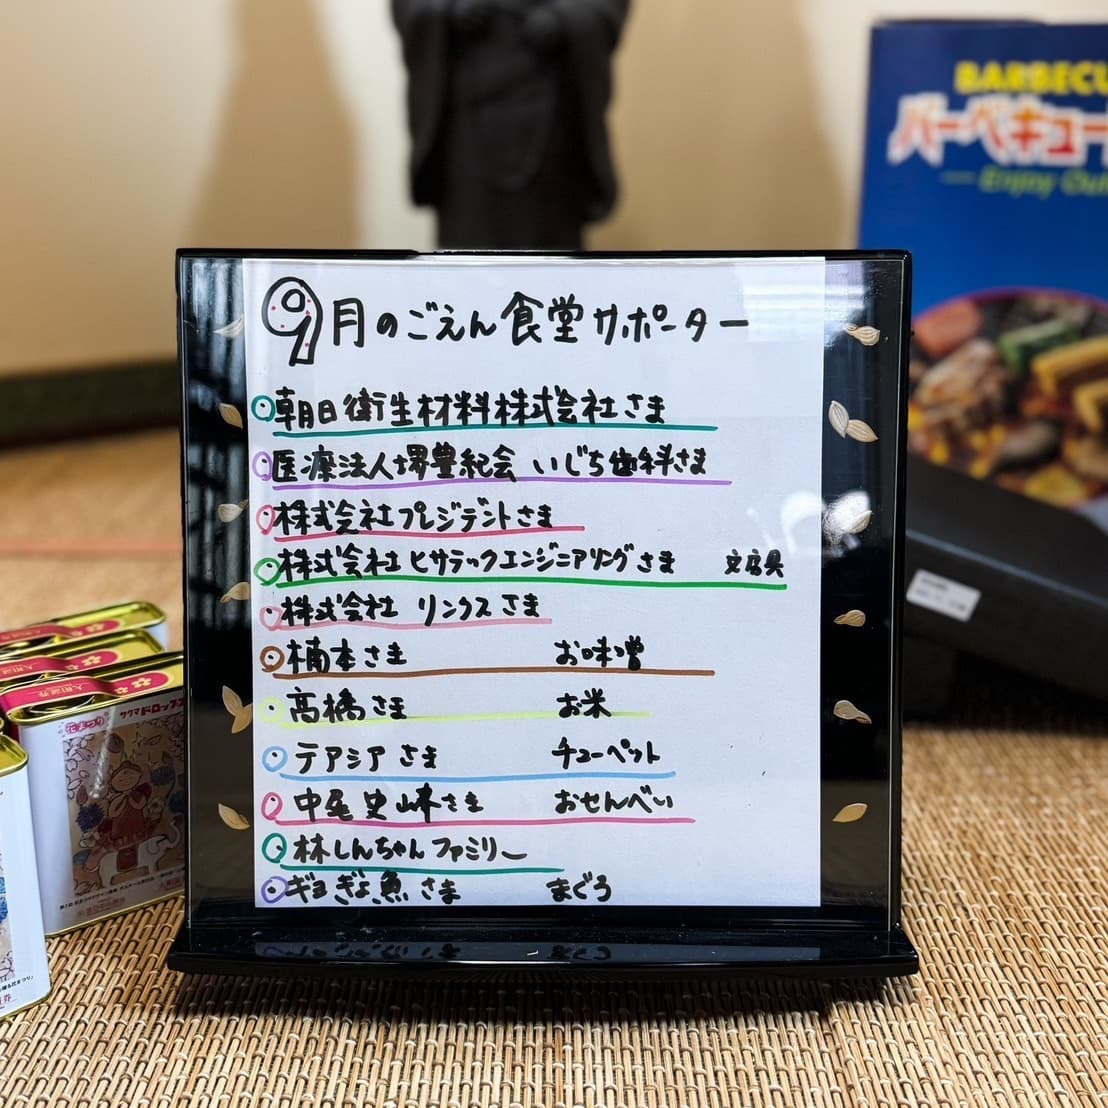 9月のごえん食堂サポーター
朝日衛生材料株式会社さま
医療法人塲豊紀会 いじち歯科さま
株式会社プレジデントさま
株式会社ヒサテックエンジニアリングさま 文房具
株式会社 リンクスさま
楠本さま お味噌
高橋さま お米
テアシアさま チューペット
中尾史峰さま おせんべい
林しんちゃんファミリー
ギョぎょ魚さま まぐろ
BARBECU
バーベキュー
Enjoy Out
花まつり サクマドロップス